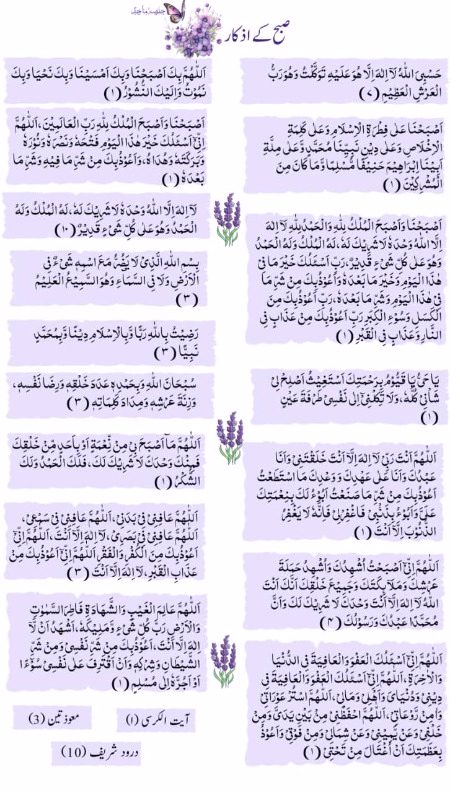 صبح کے اذکار
حَسْبِىَ اللّٰهُ لَآ اِلٰهَ اِلَّا هُوَ عَلَيْهِ تَوَكَّلْتُ وَهُوَ رَبُّ
الْعَرْشِ الْعَظِيْمِ (۷)
اَصْبَحْنَا عَلٰى فِطْرَةِ الْاِسْلَامِ وَعَلٰى كَلِمَةِ
الْاِخْلَاصِ وَعَلٰى دِيْنِ نَبِيِّنَا مُحَمَّدٍ وَّعَلٰى مِلَّةِ
اَبِيْنَا اِبْرَاهِيْمَ حَنِيْفًا مُّسْلِمًا وَّمَا كَانَ مِنَ
الْمُشْرِكِيْنَ (۱)
اَصْبَحْنَا وَاَصْبَحَ الْمُلْكُ لِلّٰهِ وَالْحَمْدُ لِلّٰهِ لَآ اِلٰهَ
اِلَّا اللّٰهُ وَحْدَهٗ لَا شَرِيْكَ لَهٗ، لَهُ الْمُلْكُ وَلَهُ الْحَمْدُ
وَهُوَ عَلٰى كُلِّ شَىْءٍ قَدِيْرٌ، رَبِّ اَسْئَلُكَ خَيْرَ مَا فِىْ
هٰذَا الْيَوْمِ وَخَيْرَ مَا بَعْدَهٗ، وَاَعُوْذُبِكَ مِنْ شَرِّ مَا
فِىْ هٰذَا الْيَوْمِ وَشَرِّ مَا بَعْدَهٗ، رَبِّ اَعُوْذُبِكَ مِنَ
الْكَسَلِ وَسُوْءِ الْكِبَرِ رَبِّ اَعُوْذُبِكَ مِنْ عَذَابٍ فِى
النَّارِ وَعَذَابٍ فِى الْقَبْرِ (۱)
يَا حَىُّ يَا قَيُّوْمُ بِرَحْمَتِكَ اَسْتَغِيْثُ اَصْلِحْ لِىْ
شَاْنِىْ كُلَّهٗ، وَلَا تَكِلْنِىْ اِلٰى نَفْسِىْ طَرْفَةَ عَيْنٍ
(۱)
اَللّٰهُمَّ اَنْتَ رَبِّىْ لَآ اِلٰهَ اِلَّا اَنْتَ خَلَقْتَنِىْ وَاَنَا
عَبْدُكَ وَاَنَا عَلٰى عَهْدِكَ وَوَعْدِكَ مَا اسْتَطَعْتُ
اَعُوْذُبِكَ مِنْ شَرِّ مَا صَنَعْتُ اَبُوْءُ لَكَ بِنِعْمَتِكَ
عَلَىَّ وَاَبُوْءُ بِذَنْبِىْ فَاغْفِرْلِىْ فَاِنَّهٗ لَا يَغْفِرُ
الذُّنُوْبَ اِلَّا اَنْتَ (۱)
اَللّٰهُمَّ اِنِّىْ اَصْبَحْتُ اُشْهِدُكَ وَاُشْهِدُ حَمَلَةَ
عَرْشِكَ وَمَلَآئِكَتَكَ وَجَمِيْعَ خَلْقِكَ اَنَّكَ اَنْتَ
اللّٰهُ لَآ اِلٰهَ اِلَّا اَنْتَ وَحْدَكَ لَا شَرِيْكَ لَكَ وَاَنَّ
مُحَمَّدًا عَبْدُكَ وَرَسُوْلُكَ (۴)
اَللّٰهُمَّ اِنِّىْ اَسْئَلُكَ الْعَفْوَ وَالْعَافِيَةَ فِى الدُّنْيَا
وَالْاٰخِرَةِ، اَللّٰهُمَّ اِنِّىْ اَسْئَلُكَ الْعَفْوَ وَالْعَافِيَةَ فِىْ
دِيْنِىْ وَدُنْيَاىَ وَاَهْلِىْ وَمَالِىْ، اَللّٰهُمَّ اسْتُرْ عَوْرَاتِىْ
وَاٰمِنْ رَوْعَاتِىْ، اَللّٰهُمَّ احْفَظْنِىْ مِنْ بَيْنِ يَدَىَّ وَمِنْ
خَلْفِىْ وَعَنْ يَّمِيْنِىْ وَعَنْ شِمَالِىْ وَمِنْ فَوْقِىْ وَاَعُوْذُ
بِعَظَمَتِكَ اَنْ اُغْتَالَ مِنْ تَحْتِىْ (۱)
اَللّٰهُمَّ بِكَ اَصْبَحْنَا وَبِكَ اَمْسَيْنَا وَبِكَ نَحْيَا وَبِكَ
نَمُوْتُ وَاِلَيْكَ النُّشُوْرُ (۱)
اَصْبَحْنَا وَاَصْبَحَ الْمُلْكُ لِلّٰهِ رَبِّ الْعَالَمِيْنَ، اَللّٰهُمَّ
اِنِّىْ اَسْئَلُكَ خَيْرَ هٰذَا الْيَوْمِ فَتْحَهٗ وَنَصْرَهٗ وَنُوْرَهٗ
وَبَرَكَتَهٗ وَهُدَاهُ، وَاَعُوْذُبِكَ مِنْ شَرِّ مَا فِيْهِ وَشَرِّ مَا
بَعْدَهٗ (۱)
لَآ اِلٰهَ اِلَّا اللّٰهُ وَحْدَهٗ لَا شَرِيْكَ لَهٗ، لَهُ الْمُلْكُ وَلَهُ
الْحَمْدُ وَهُوَ عَلٰى كُلِّ شَىْءٍ قَدِيْرٌ (۱۰)
بِسْمِ اللّٰهِ الَّذِىْ لَا يَضُرُّ مَعَ اسْمِهٖ شَىْءٌ فِى
الْاَرْضِ وَلَا فِى السَّمَآءِ وَهُوَ السَّمِيْعُ الْعَلِيْمُ
(۳)
رَضِيْتُ بِاللّٰهِ رَبًّا وَّبِالْاِسْلَامِ دِيْنًا وَّبِمُحَمَّدٍ
نَبِيًّا (۳)
سُبْحَانَ اللّٰهِ وَبِحَمْدِهٖ عَدَدَ خَلْقِهٖ وَرِضَا نَفْسِهٖ،
وَزِنَةَ عَرْشِهٖ وَمِدَادَ كَلِمَاتِهٖ (۳)
اَللّٰهُمَّ مَآ اَصْبَحَ بِىْ مِنْ نِّعْمَةٍ اَوْ بِاَحَدٍ مِّنْ خَلْقِكَ
فَمِنْكَ وَحْدَكَ لَا شَرِيْكَ لَكَ، فَلَكَ الْحَمْدُ وَلَكَ
الشُّكْرُ (۱)
اَللّٰهُمَّ عَافِنِىْ فِىْ بَدَنِىْ، اَللّٰهُمَّ عَافِنِىْ فِىْ سَمْعِىْ،
اَللّٰهُمَّ عَافِنِىْ فِىْ بَصَرِىْ، لَآ اِلٰهَ اِلَّا اَنْتَ، اَللّٰهُمَّ اِنِّىْ
اَعُوْذُبِكَ مِنَ الْكُفْرِ وَالْفَقْرِ اَللّٰهُمَّ اِنِّىْ اَعُوْذُبِكَ مِنْ
عَذَابِ الْقَبْرِ، لَآ اِلٰهَ اِلَّا اَنْتَ (۳)
اَللّٰهُمَّ عَالِمَ الْغَيْبِ وَالشَّهَادَةِ فَاطِرَ السَّمٰوٰتِ
وَالْاَرْضِ رَبَّ كُلِّ شَىْءٍ وَّمَلِيْكَهٗ، اَشْهَدُ اَنْ لَّآ
اِلٰهَ اِلَّا اَنْتَ، اَعُوْذُبِكَ مِنْ شَرِّ نَفْسِىْ وَمِنْ شَرِّ
الشَّيْطَانِ وَشِرْكِهٖ وَاَنْ اَقْتَرِفَ عَلٰى نَفْسِىْ سُوْٓءًا
اَوْ اَجُرَّهٗ اِلٰى مُسْلِمٍ (۱)
آیت الکرسی (۱)
معوذتین (3)
درود شریف (10)